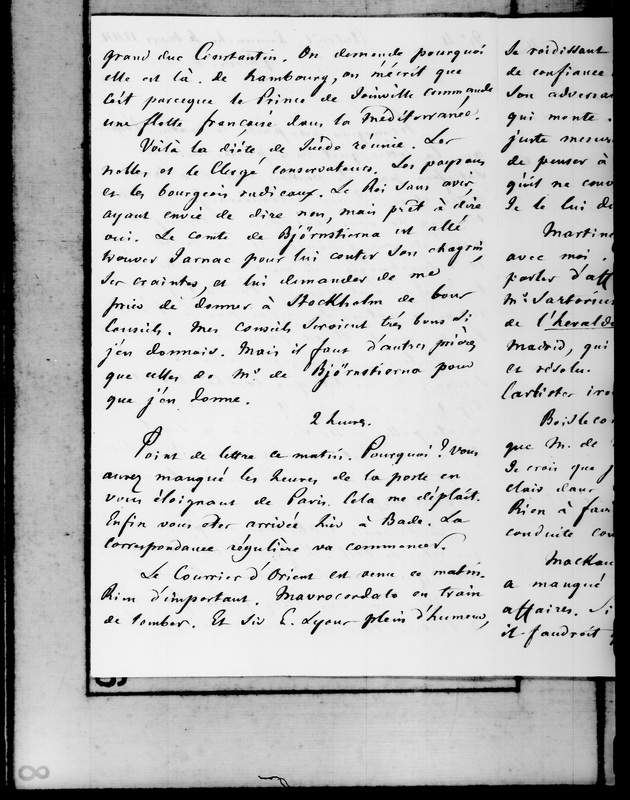 grand duc Constantin. On demande pourquoi
elle est là. de hambourg, on m'écrit que
c'est parceque le Prince de Joinville commande
une flotte française dans la Méditerranée.
Voilà la diète de Suède réunie. Les
nobles et le Clergé conservateurs. Les paysans
et les bourgeois radicaux. Le Roi sans avis,
ayant envie de dire non, mais prêt à dire
oui. Le comte de Björnstierna est allé
trouver Jarnac pour lui conter son chagrin,
ses craintes, et lui demander de me
prier de donner à Stockholm de bons
Conseils. Mes conseils seroient très bons si
j'en donnois. Mais il faut d'autres prières
que celles de Mr. de Björnstierna pour
que j'en donne.
2 heures.
Point de lettre ce matin. Pourquoi ? Vous
aurez manqué les heures de la poste en
vous éloignant de Paris. Cela me déplait.
Enfin vous êtes arrivée hier à Bade. La
correspondance régulière va commencer.
Le Courrier d'Orient est venu ce matin.
Rien d'important. Mavrocordato en train
de tomber. Et Sir E. Lyons plein d'humeur,
se roidissant
de confiance
son adversai
qui monte.
juste mesur
de penser à
qu'il ne conv
Je le lui
Martine
avec moi.
parler d'aff
Mr. Sartorius
de l'herald
Madrid, qui
et résolu.
l'arbitre
Boislecom
que M. de
Je crois que
clair dans
Rien à fair
conduite
Mackau
a manqué
affaires. Si
il faudroit
8